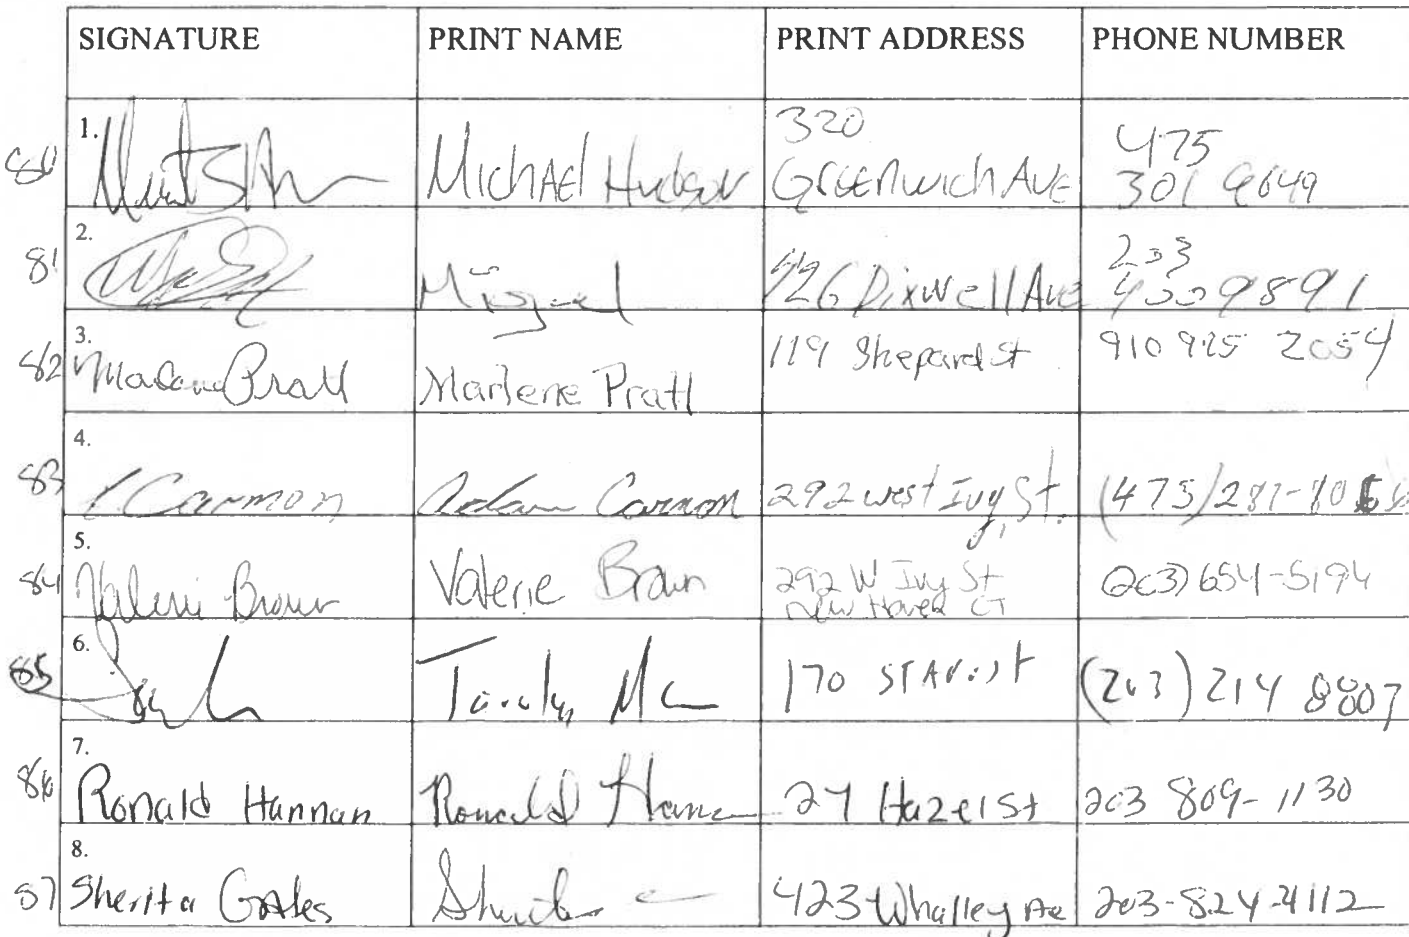 SIGNATURE PRINT NAME PRINT ADDRESS PHONE NUMBER
80 1. Michael Hudson 320 Greenwich Ave 475 301 9649
81 2. Miguel 426 Dixwell Ave 203 9891
82 3. Pratt Marlene Pratt 119 Shepard St 910 925 2054
83 4. Carmon Adam Carmon 292 west Ivy St. (475)
84 5. Valerie Brown Valerie Brown 292 W Ivy St New Haven CT (203) 654-5194
85 6. 170 (203) 214 8807
86 7. Ronald Hannan Ronald 27 Hazel St 203 809-1130
87 8. Sherita Gates 423 Whalley Ave 203-824-4112